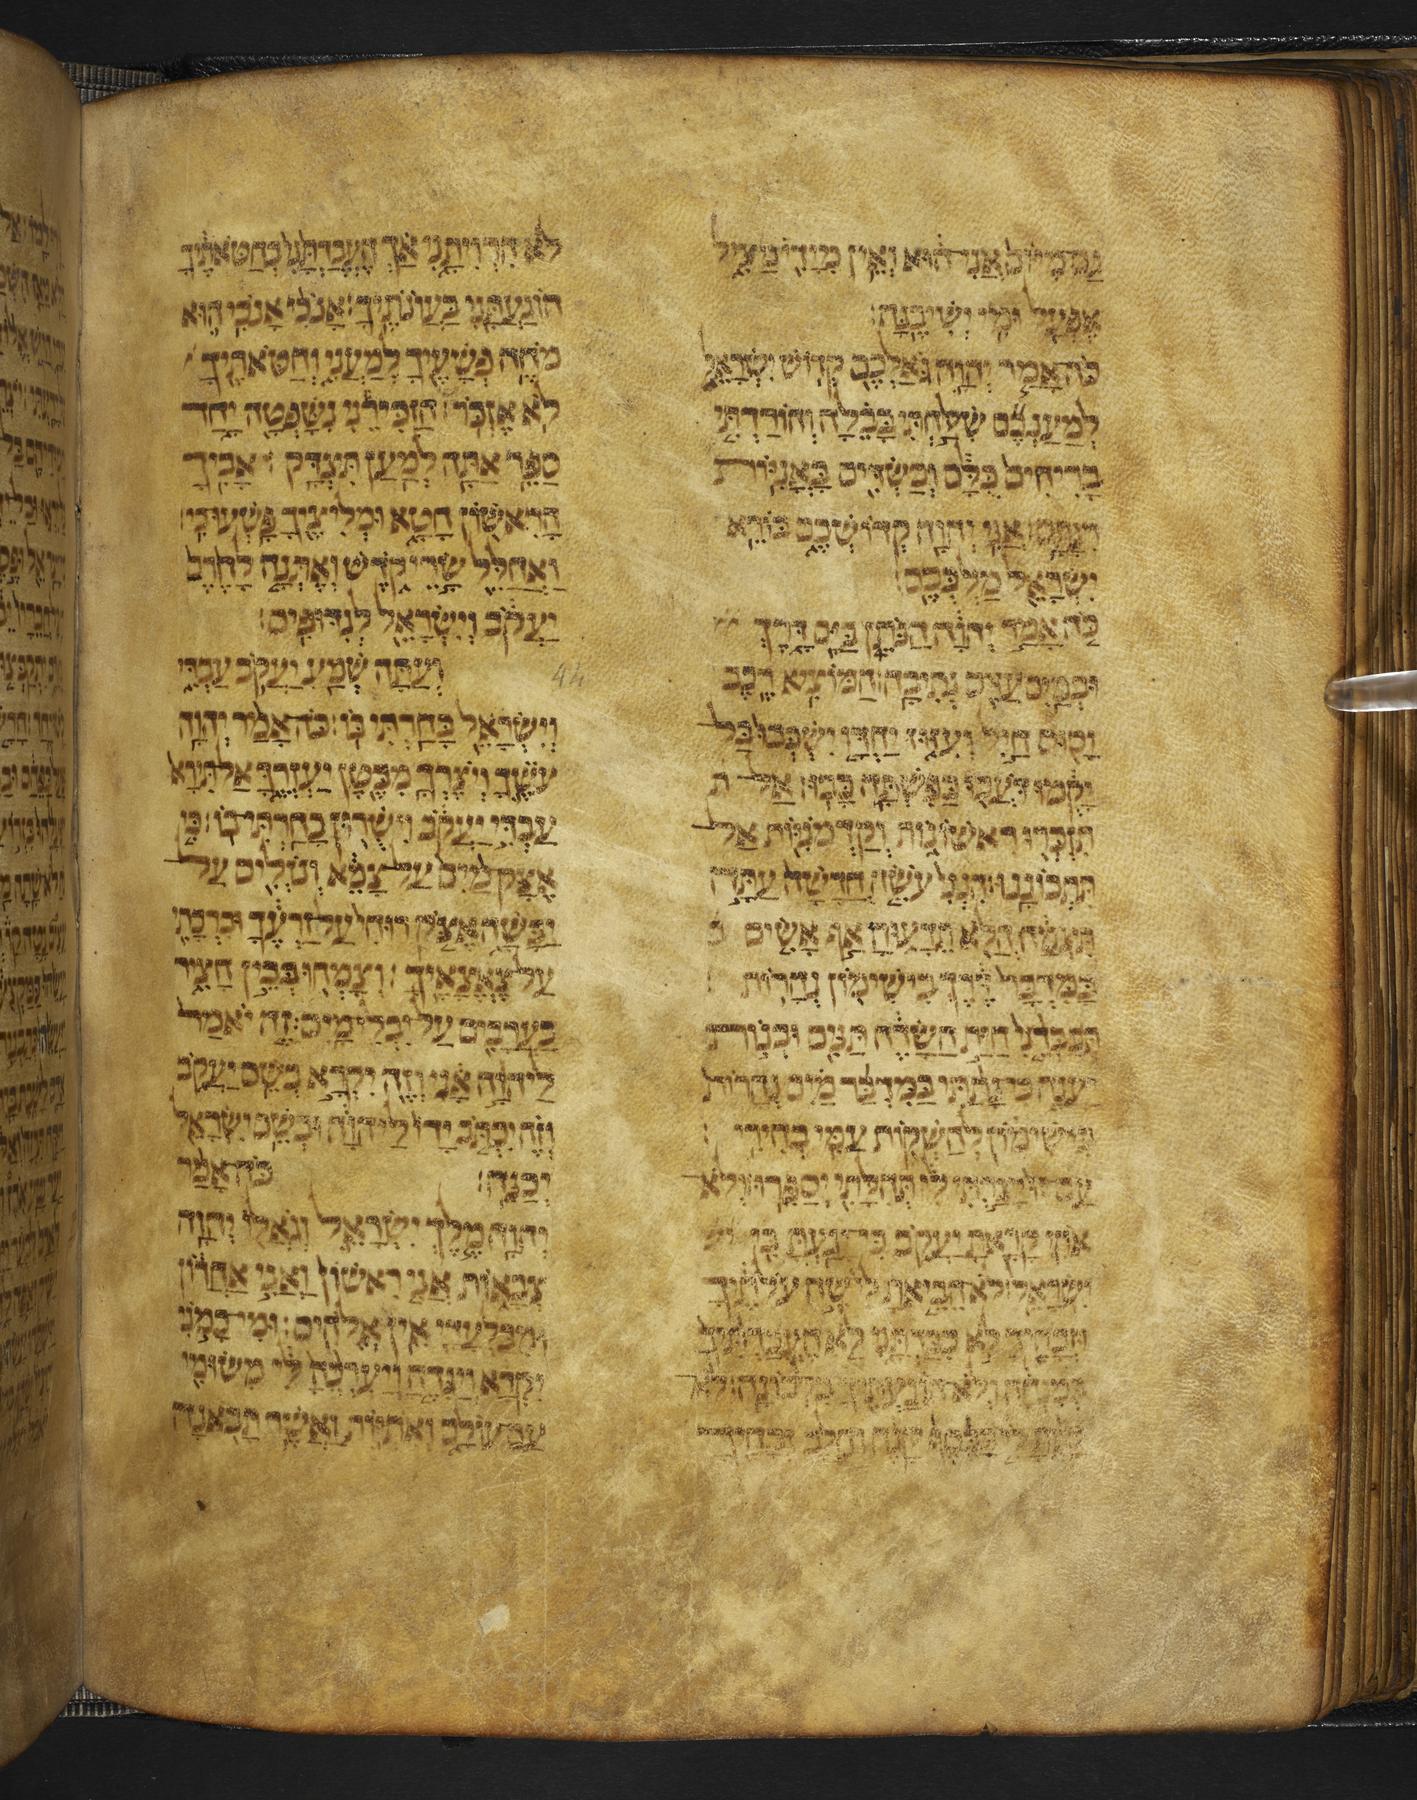 גַּם מִיּוֹם אֲנִי הוּא וְאֵין מִיָּדִי מַצִּיל
אֶפְעַל וּמִי יְשִׁיבֶנָּה׃
כֹּה אָמַר יְהוָה גֹּאַלְכֶם קְדוֹשׁ יִשְׂרָאֵל
לְמַעַנְכֶם שִׁלַּחְתִּי בָבֶלָה וְהוֹרַדְתִּי
בָרִיחִים כֻּלָּם וְכַשְׂדִּים בָּאֳנִיּוֹת
רִנָּתָם׃ אֲנִי יְהוָה קְדוֹשְׁכֶם בּוֹרֵא
יִשְׂרָאֵל מַלְכְּכֶם׃
כֹּה אָמַר יְהוָה הַנֹּתֵן בַּיָּם דָּרֶךְ
וּבְמַיִם עַזִּים נְתִיבָה׃ הַמּוֹצִיא רֶכֶב
וָסוּס חַיִל וְעִזּוּז יַחְדָּו יִשְׁכְּבוּ בַּל
יָקֻמוּ דָּעֲכוּ כַּפִּשְׁתָּה כָבוּ׃ אַל ת
תִּזְכְּרוּ רִאשֹׁנוֹת וְקַדְמֹנִיּוֹת אַל
תִּתְבּוֹנָנוּ׃ הִנְנִי עֹשֶׂה חֲדָשָׁה עַתָּה
תִצְמָח הֲלֹא תֵדָעוּהָ אַף אָשִׂים ב
בַּמִּדְבָּר דֶּרֶךְ בִּישִׁימוֹן נְהָרוֹת׃
תְּכַבְּדֵנִי חַיַּת הַשָּׂדֶה תַּנִּים וּבְנוֹת
יַעֲנָה כִּי נָתַתִּי בַמִּדְבָּר מַיִם נְהָרוֹת
בִּישִׁימֹן לְהַשְׁקוֹת עַמִּי בְחִירִי׃
עַם זוּ יָצַרְתִּי לִי תְּהִלָּתִי יְסַפֵּרוּ׃ וְלֹא
אֹתִי קָרָאתָ יַעֲקֹב כִּי יָגַעְתָּ בִּי
יִשְׂרָאֵל׃ לֹא הֵבֵיאתָ לִּי שֵׂה עֹלֹתֶיךָ
וּזְבָחֶיךָ לֹא כִבַּדְתָּנִי לֹא הֶעֱבַדְתִּיךָ
בְּמִנְחָה וְלֹא הוֹגַעְתִּיךָ בִּלְבוֹנָה׃ לֹא
קָנִיתָ לִּי בַכֶּסֶף קָנֶה וְחֵלֶב זְבָחֶיךָ
לֹא הִרְוִיתָנִי אַךְ הֶעֱבַדְתַּנִי בְּחַטֹּאתֶיךָ
הוֹגַעְתַּנִי בַּעֲוֹנֹתֶיךָ׃ אָנֹכִי אָנֹכִי הוּא
מֹחֶה פְשָׁעֶיךָ לְמַעֲנִי וְחַטֹּאתֶיךָ
לֹא אֶזְכֹּר׃ הַזְכִּירֵנִי נִשָּׁפְטָה יָחַד
סַפֵּר אַתָּה לְמַעַן תִּצְדָּק׃ אָבִיךָ
הָרִאשׁוֹן חָטָא וּמְלִיצֶיךָ פָּשְׁעוּ בִי׃
וַאֲחַלֵּל שָׂרֵי קֹדֶשׁ וְאֶתְּנָה לַחֵרֶם
יַעֲקֹב וְיִשְׂרָאֵל לְגִדּוּפִים׃
וְעַתָּה שְׁמַע יַעֲקֹב עַבְדִּי
וְיִשְׂרָאֵל בָּחַרְתִּי בוֹ׃ כֹּה אָמַר יְהוָה
עֹשֶׂךָ וְיֹצֶרְךָ מִבֶּטֶן יַעְזְרֶךָּ אַל תִּירָא
עַבְדִּי יַעֲקֹב וִישֻׁרוּן בָּחַרְתִּי בוֹ׃ כִּי
אֶצָּק מַיִם עַל צָמֵא וְנֹזְלִים עַל
יַבָּשָׁה אֶצֹּק רוּחִי עַל זַרְעֶךָ וּבִרְכָתִי
עַל צֶאֱצָאֶיךָ׃ וְצָמְחוּ בְּבֵין חָצִיר
כַּעֲרָבִים עַל יִבְלֵי מָיִם׃ זֶה יֹאמַר
לַיהוָה אָנִי וְזֶה יִקְרָא בְשֵׁם יַעֲקֹב
וְזֶה יִכְתֹּב יָדוֹ לַיהוָה וּבְשֵׁם יִשְׂרָאֵל
יְכַנֶּה׃ כֹּה אָמַר
יְהוָה מֶלֶךְ יִשְׂרָאֵל וְגֹאֲלוֹ יְהוָה
צְבָאוֹת אֲנִי רִאשׁוֹן וַאֲנִי אַחֲרוֹן
וּמִבַּלְעָדַי אֵין אֱלֹהִים׃ וּמִי כָמוֹנִי
יִקְרָא וְיַגִּידֶהָ וְיַעְרְכֶהָ לִי מִשּׂוּמִי
עַם עוֹלָם וְאֹתִיּוֹת וַאֲשֶׁר תָּבֹאנָה
44